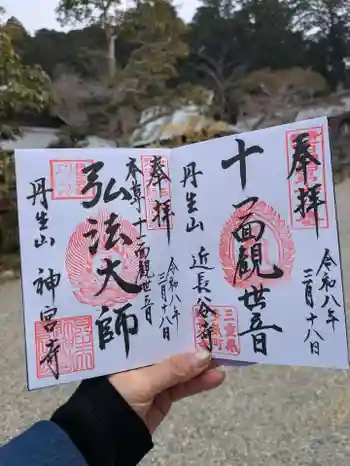 奉拝
十一面観世音
丹生山 近長谷寺
令和八年
三月十八日
三重県
奉拝
本尊十一面観世音
弘法大師
丹生山 神宮寺
令和八年
三月十八日